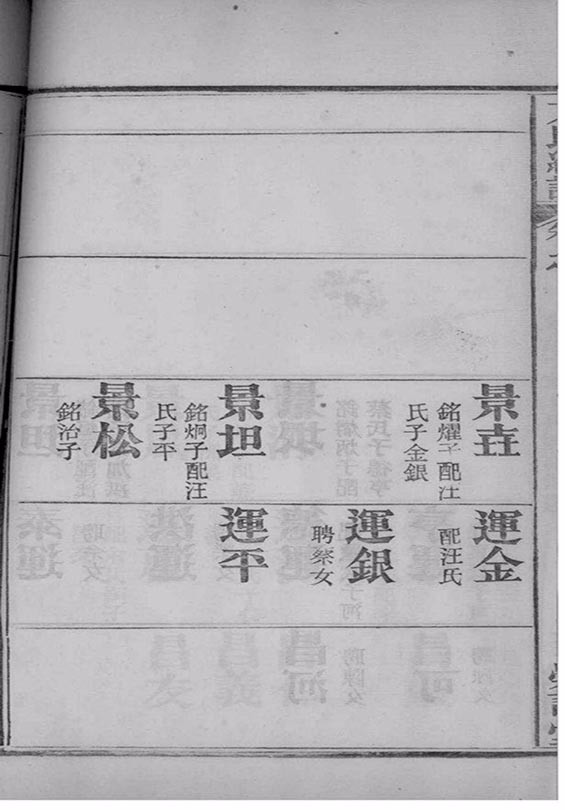 景垚
銘燿子配汪
氏子金銀
景坦
銘炯子配汪
氏子平
景松
銘治子
運金
配汪氏
運銀
聘蔡女
運平